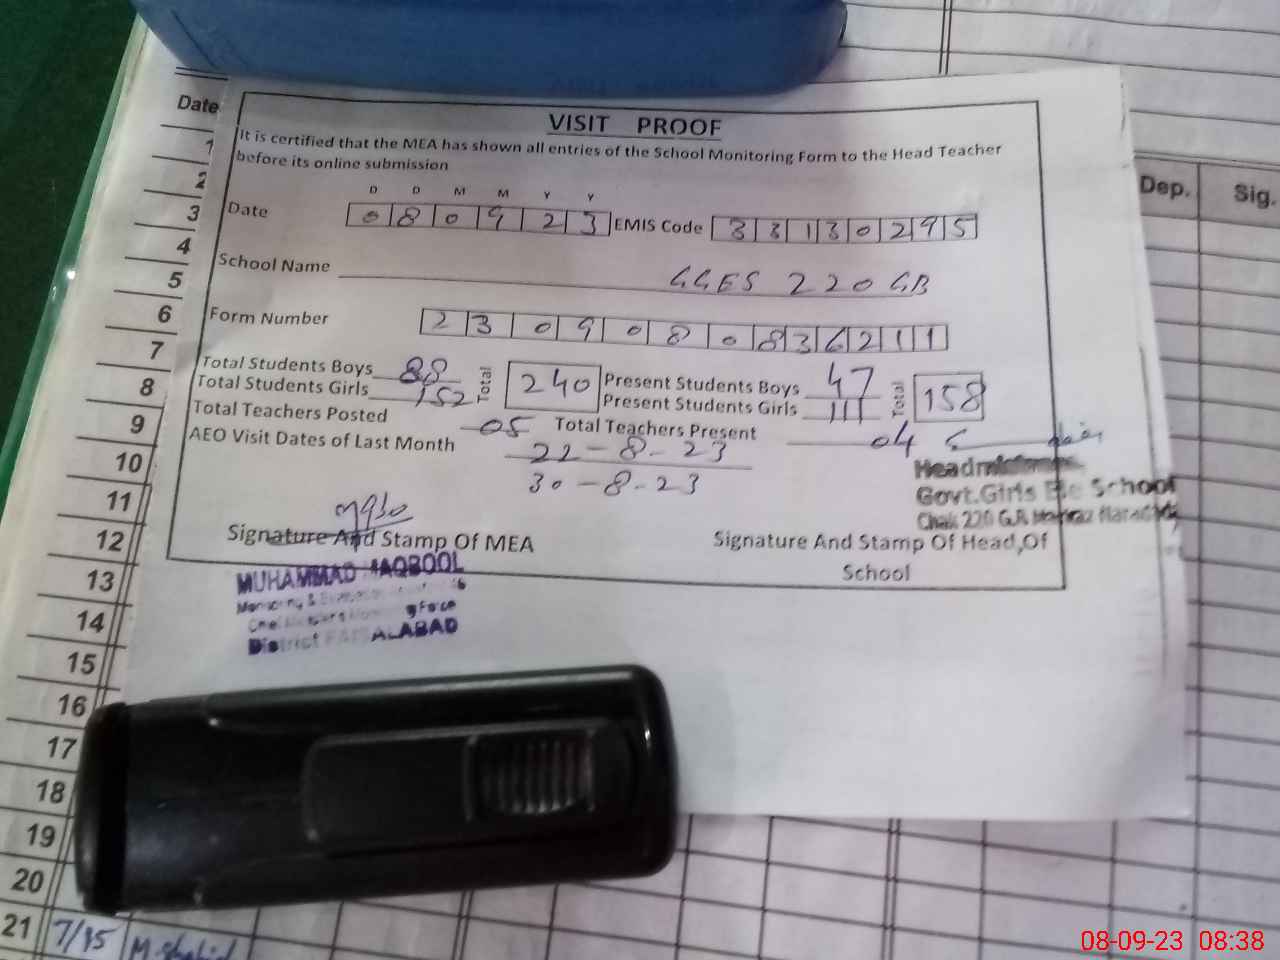 Date
1
2
3
4
5
6
7
8
9
10
11
12
13
14
15
16
17
18
19
20
21 7/95 M.Shahid
Dep. Sig.
VISIT PROOF
It is certified that the MEA has shown all entries of the School Monitoring Form to the Head Teacher
before its online submission
D D M M Y Y
Date 0 8 0 9 2 3 EMIS Code 3 3 1 3 0 2 9 5
School Name GGES 220 GB
Form Number 2 3 0 9 0 8 0 8 3 6 2 1 1
Total Students Boys 88 Total 240 Present Students Boys 47 Total 158
Total Students Girls 152 Present Students Girls 111
Total Teachers Posted 05 Total Teachers Present 04
AEO Visit Dates of Last Month 22-8-23
30-8-23
Headmistress
Govt. Girls Ele School
Chak 220 G.B
Signature And Stamp Of MEA
Signature And Stamp Of Head Of
School
MUHAMMAD MAQBOOL
District FAISALABAD
08-09-23 08:38